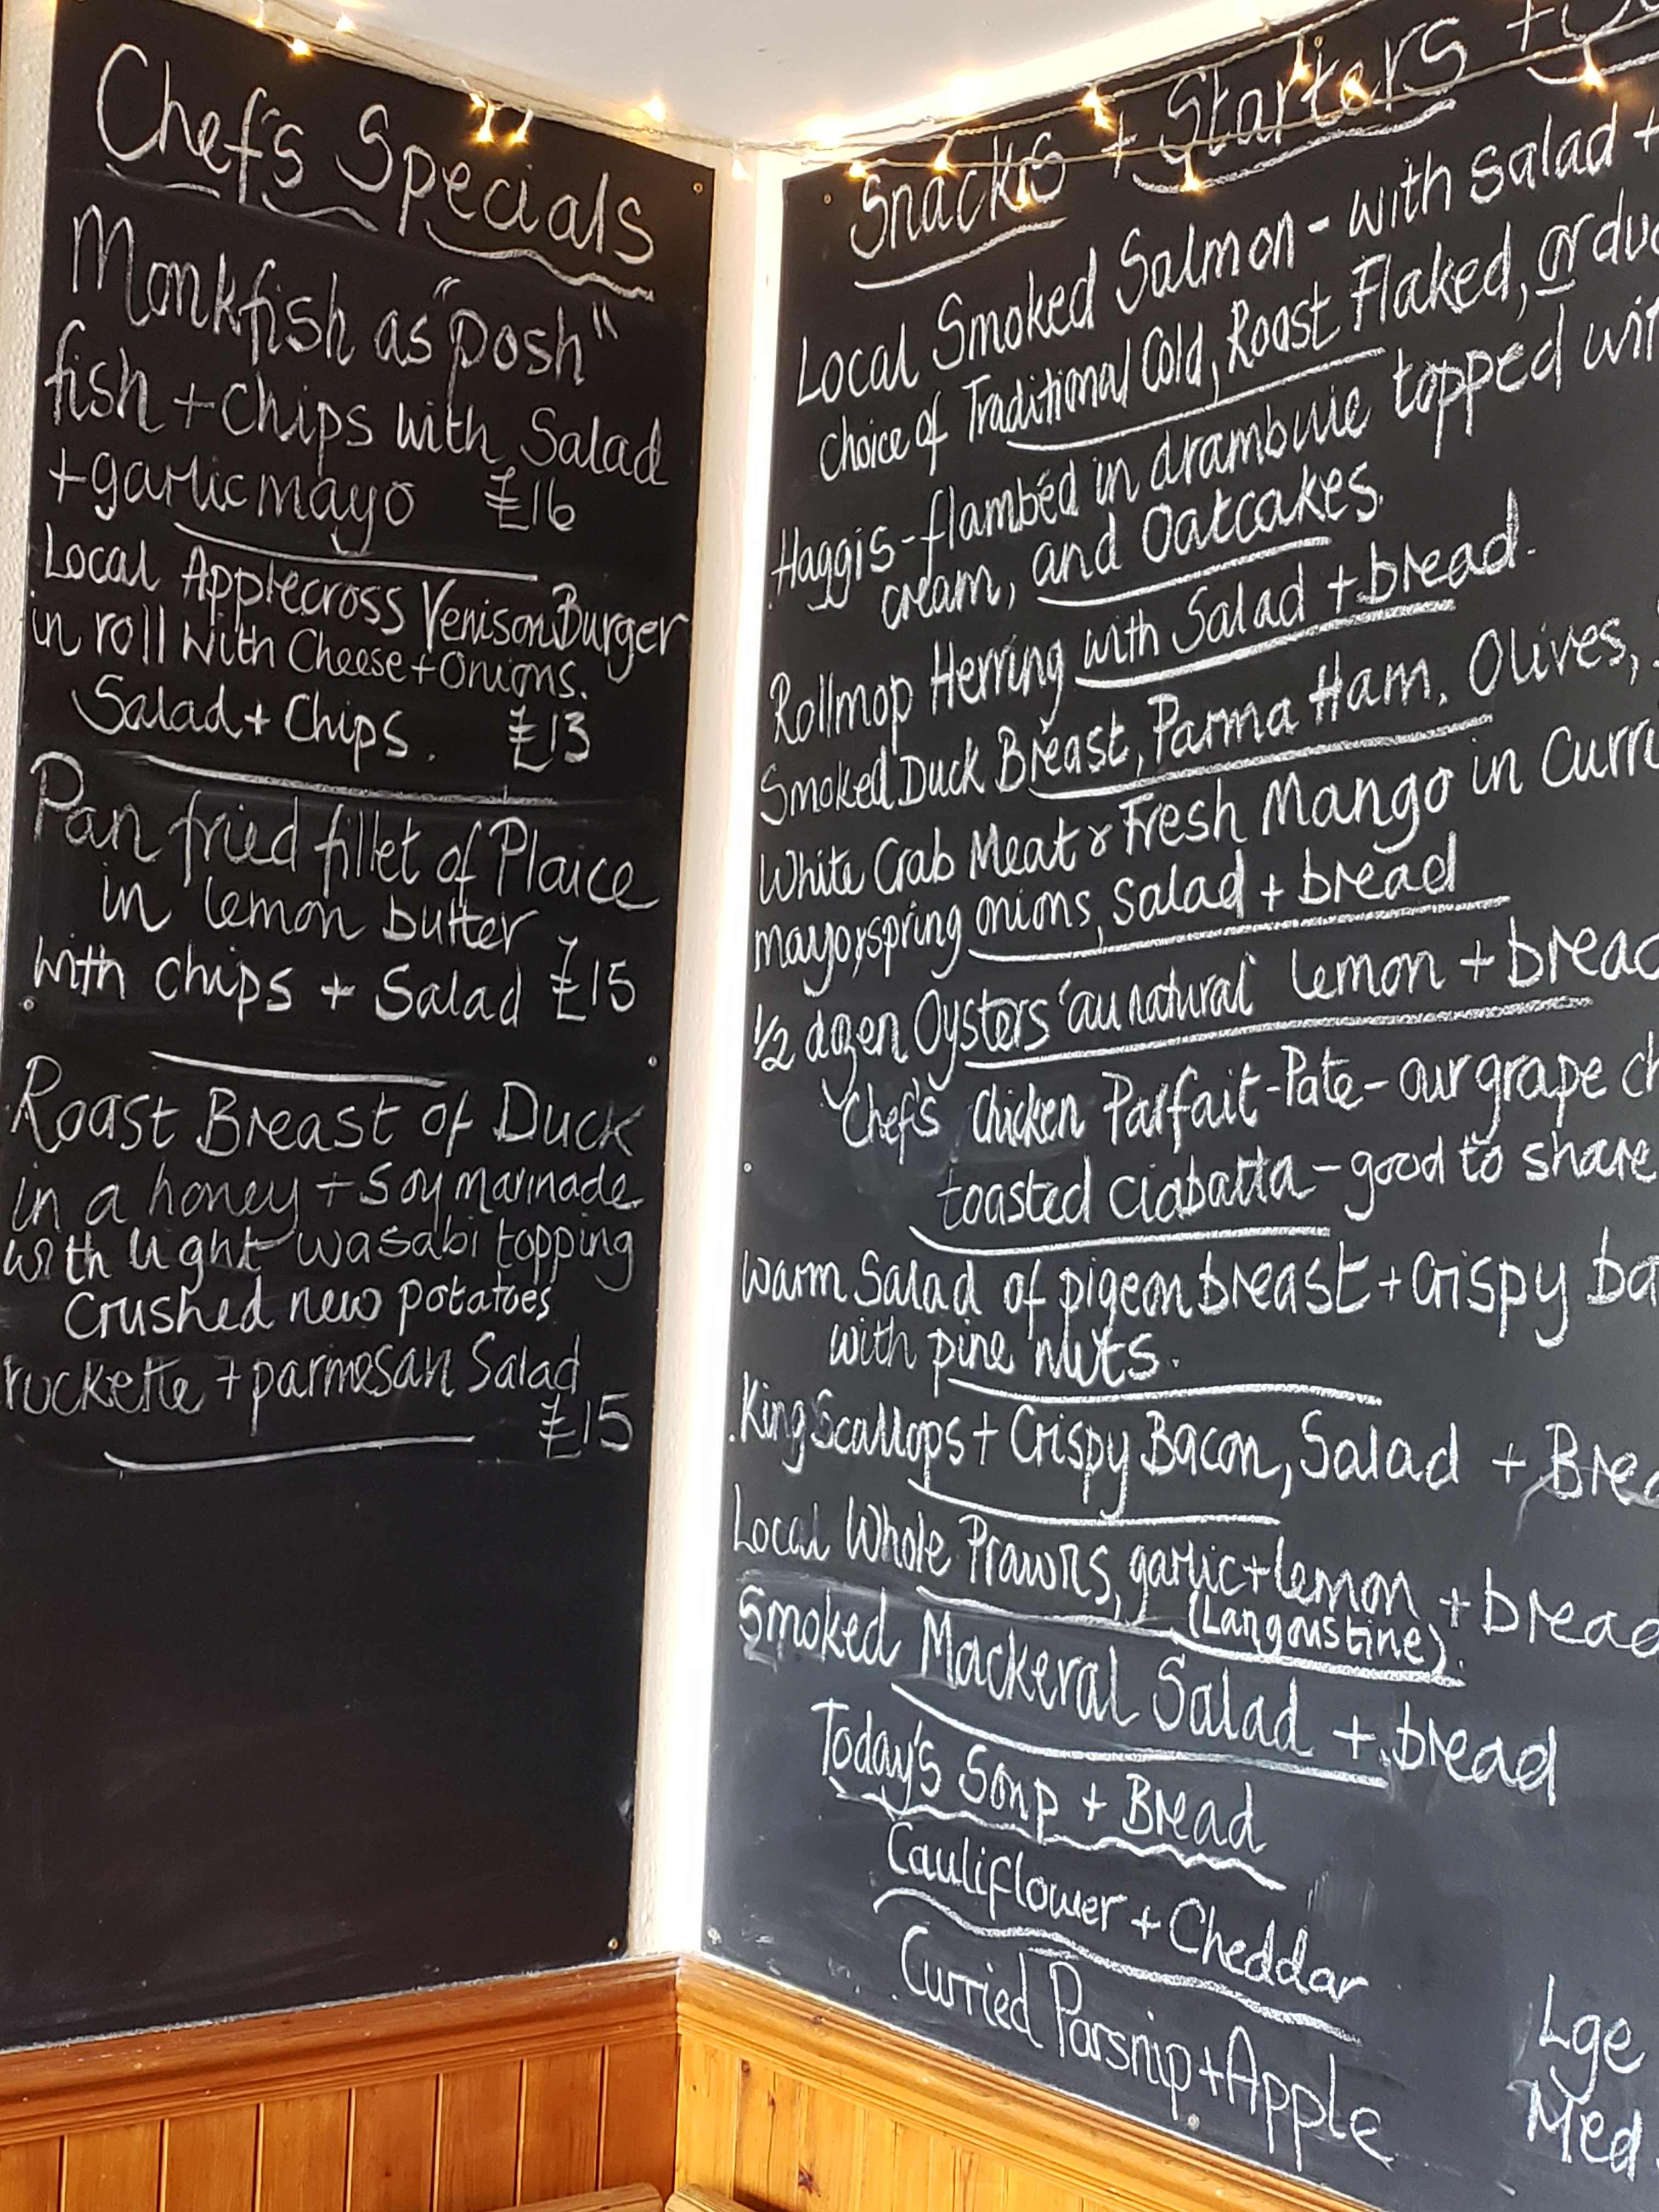 Chef's Specials
Monkfish as "posh"
fish + Chips with Salad
+ garlic mayo £16
Local Applecross Venison Burger
in roll with Cheese + Onions.
Salad + Chips. £13
Pan fried fillet of Plaice
in lemon butter
with chips + Salad £15
Roast Breast of Duck
in a honey + Soy marinade
with light wasabi topping
Crushed new potatoes
rockette + parmesan Salad
£15
Snacks + Starters +
Local Smoked Salmon - with Salad +
choice of Traditional Cold, Roast Flaked, or
Haggis - flambéd in drambuie topped
cream, and Oatcakes.
Rollmop Herring with Salad + bread.
Smoked Duck Breast, Parma Ham, Olives,
White Crab Meat & Fresh Mango in
mayo, spring onions, Salad + bread
1/2 dozen Oysters 'au natural' lemon +
Chef's Chicken Parfait - Pate - our grape
toasted ciabatta - good to share
Warm Salad of pigeon breast + Crispy
with pine nuts.
King Scallops + Crispy Bacon, Salad +
Local Whole Prawns, garlic + lemon +
(Langoustine).
Smoked Mackeral Salad + bread
Today's Soup + Bread
Cauliflower + Cheddar
Curried Parsnip + Apple
Lge
Med